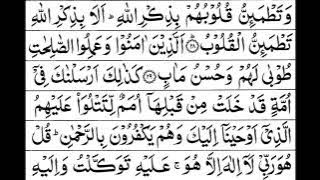 وَتَطْمَئِنُّ قُلُوبُهُمْ بِذِكْرِ اللّٰهِ ؕ اَلَا بِذِكْرِ اللّٰهِ
تَطْمَئِنُّ الْقُلُوبُ ﴿۲۸﴾ اَلَّذِيْنَ اٰمَنُوْا وَعَمِلُوا الصّٰلِحٰتِ
طُوْبٰى لَهُمْ وَحُسْنُ مَاٰبٍ ﴿۲۹﴾ كَذٰلِكَ اَرْسَلْنٰكَ فِيْۤ
اُمَّةٍ قَدْ خَلَتْ مِنْ قَبْلِهَاۤ اُمَمٌ لِّتَتْلُوَا۟ عَلَيْهِمُ
الَّذِيْۤ اَوْحَيْنَاۤ اِلَيْكَ وَهُمْ يَكْفُرُوْنَ بِالرَّحْمٰنِ ؕ قُلْ
هُوَ رَبِّيْ لَاۤ اِلٰهَ اِلَّا هُوَ ۚ عَلَيْهِ تَوَكَّلْتُ وَاِلَيْهِ